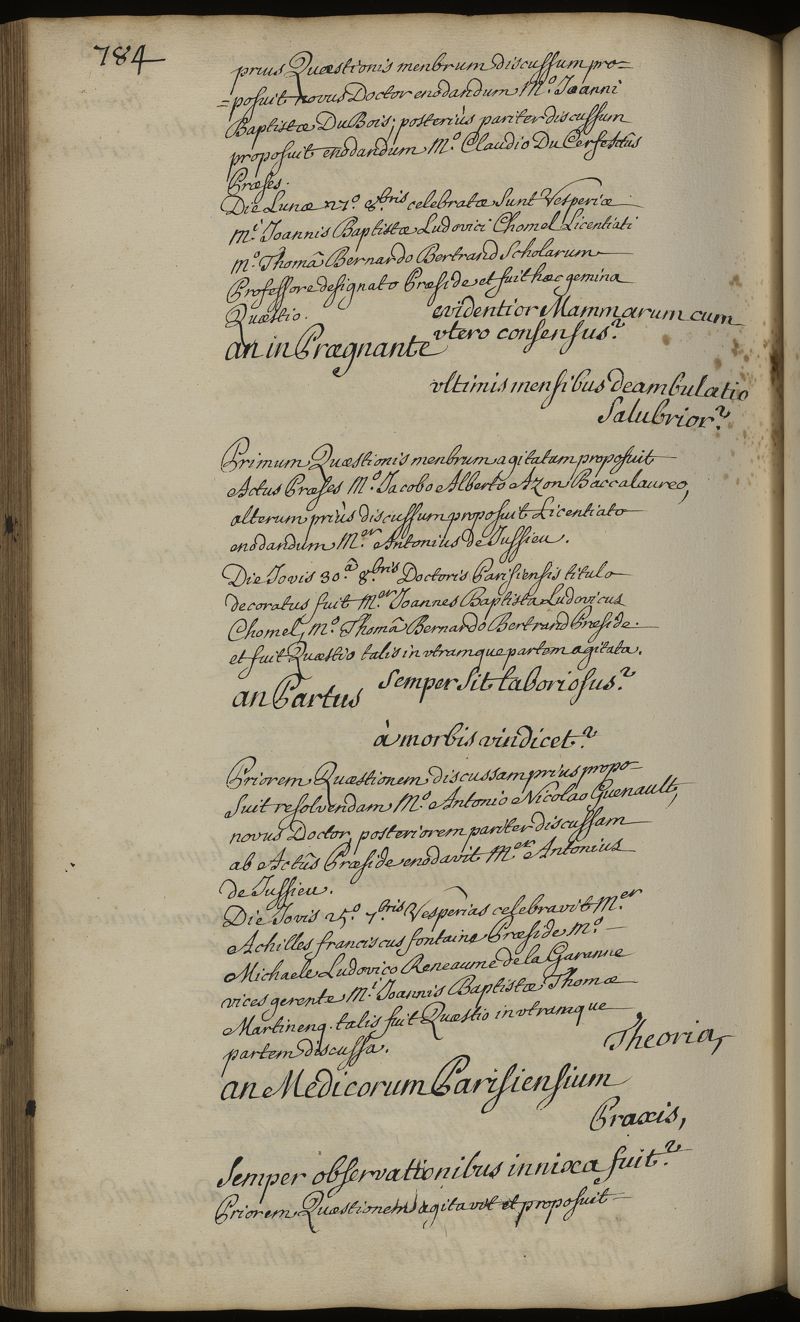 784
prius Quæstionis menbrum discussum pro=
=posuit novus Doctor enodandum M.º Joanni
Baptistæ DuBois; posteriùs pariter discussum
proposuit enodandum M.º Claudio Du
Præses.
Die Lunæ 27.º 8.bris celebratæ sunt Vesperiæ
M.i Joannis Baptistæ Ludovici Chomel Licentiati
M.º Thomâ Bernardo Bertrand Scholarum
Professore designato Præside et fuit hæc gemina
Quæstio.
evidentior Mammarum cum
an in Prægnante
vtero consensus?
vltimis mensibus deambulatio
Salubrior?
Primum Quæstionis menbrum agitatum proposuit
Actus Præses M.º Jacobo Alberto Azon Baccalaureo,
alterum priùs discussum proposuit Licentiato
enodandum M.er Antonius de Jussieu.
Die Jovis 30.â 8.bris Doctoris Parisiensis titulo
decoratus fuit M.er Joannes Baptista Ludovicus
Chomel, M.º Thomâ Bernardo Bertrand Præside.
et fuit Quæstio talis in vtramque partem agitata.
semper sit laboriosus?
an Partus
à morbis vindicet?
Priorem Quæstionem discussam prius propo-
suit resolvendam M.º Antonio Nicolao Guenault,
novus Doctor, posteriorem pariter discussam
ab Actûs Præside enodavit M.er Antonius
de Jussieu.
Die Jovis 25.º 7.bris Vesperias celebravit M.er
Achilles franciscus fontaine Præside M.º
Michaele Ludovico Reneaume de la Garanne
vices gerente M.i Joannis Baptistæ Thomæ
Martinenq. talis fuit Quæstio in vtramque
partem discussa.
Theoria,
an Medicorum Parisiensium
Praxis,
semper observationibus innixa fuit?
Priorem Quæstionem agitavit et proposuit